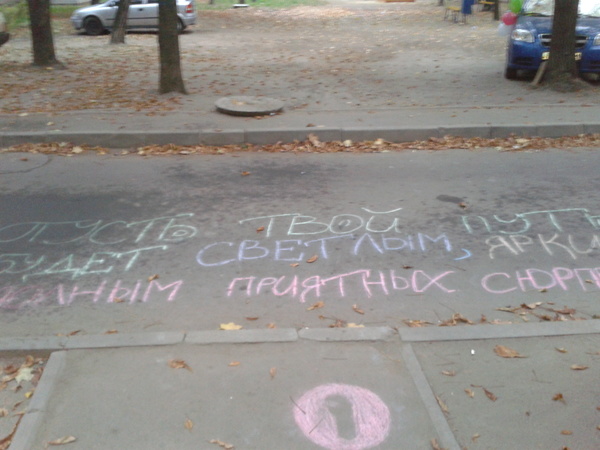 ПУСТЬ ТВОЙ ПУТЬ
БУДЕТ СВЕТЛЫМ, ЯРКИ
ПРИЯТНЫХ СЮРП
1